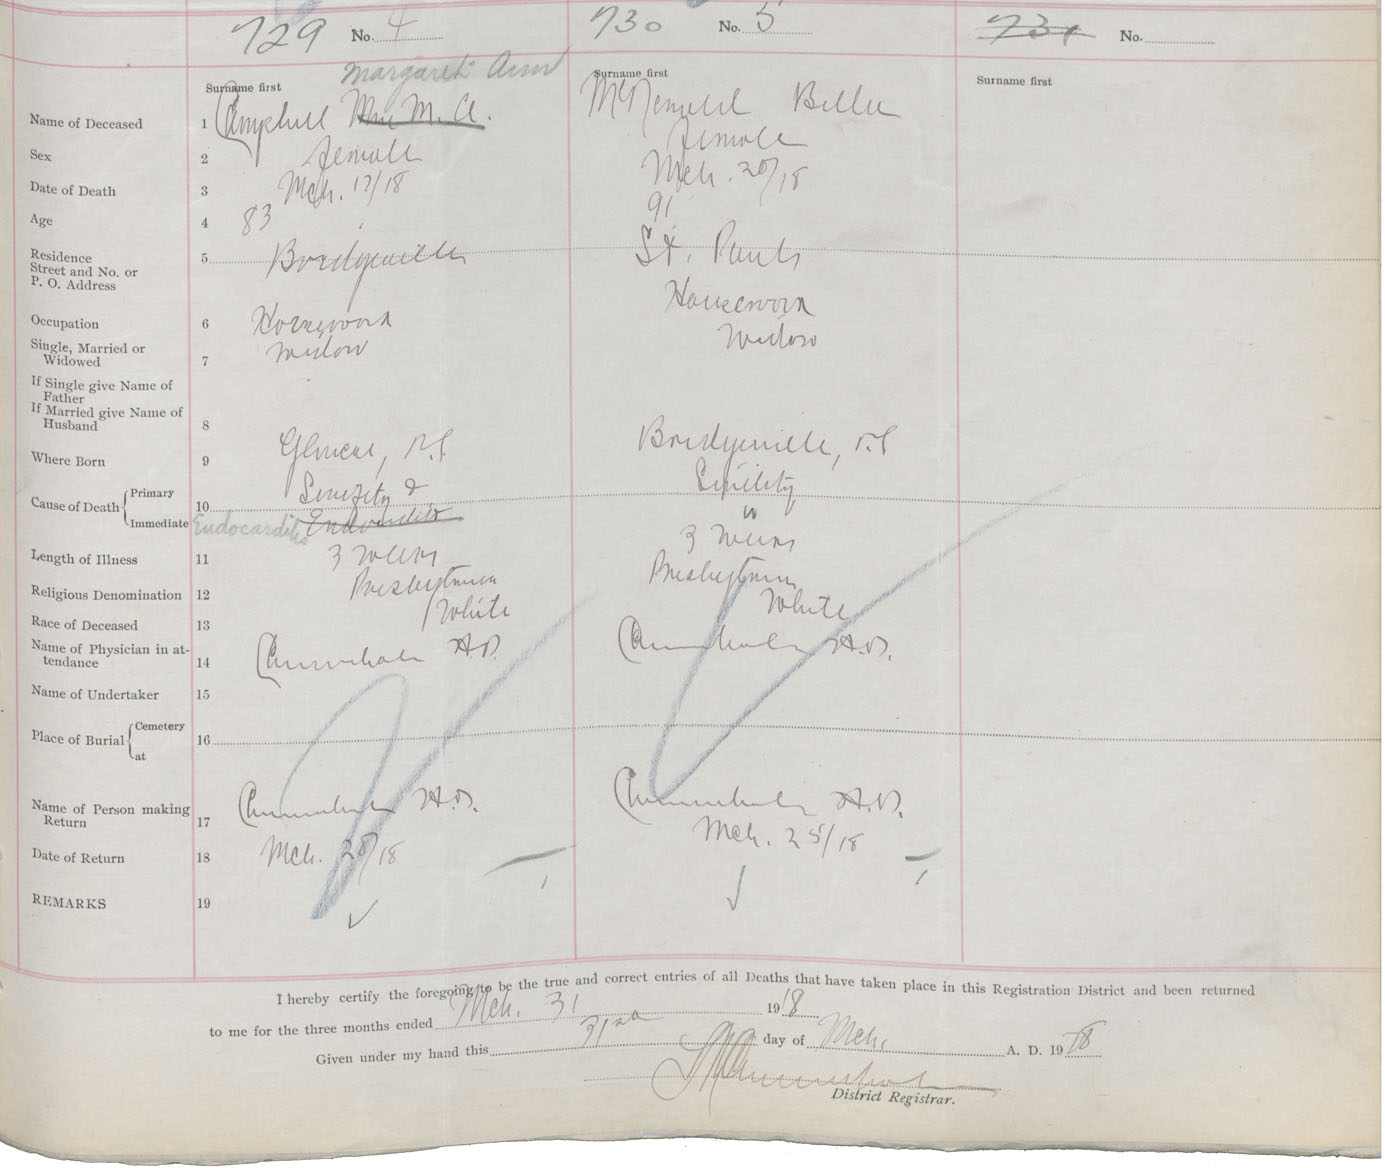 729 No. 4
730 No. 5
731 No.
Surname first Margaret Ann
Surname first
Surname first
Name of Deceased 1 Campbell Mrs M. A. McDonald Bella
Sex 2 female female
Date of Death 3 Mch. 17/18 Mch. 20/18
Age 4 83 91
Residence
Street and No. or
P. O. Address
5 Bridgeville St. Pauls
Occupation 6 Housework Housework
Single, Married or
Widowed 7 widow widow
If Single give Name of
Father
If Married give Name of
Husband 8
Where Born 9 Glencoe, N.S. Bridgeville, N.S
Cause of Death Primary 10 Senility & Senility
Immediate Endocarditis Endocarditis
Length of Illness 11 3 weeks 3 weeks
Religious Denomination 12 Presbyterian Presbyterian
Race of Deceased 13 White White
Name of Physician in at-
tendance 14
Name of Undertaker 15
Place of Burial Cemetery 16
at
Name of Person making
Return 17
Date of Return 18 Mch. 20/18 Mch. 25/18
REMARKS 19
I hereby certify the foregoing to be the true and correct entries of all Deaths that have taken place in this Registration District and been returned
to me for the three months ended Mch. 31 1918
Given under my hand this 31st day of Mch. A. D. 1918
District Registrar.